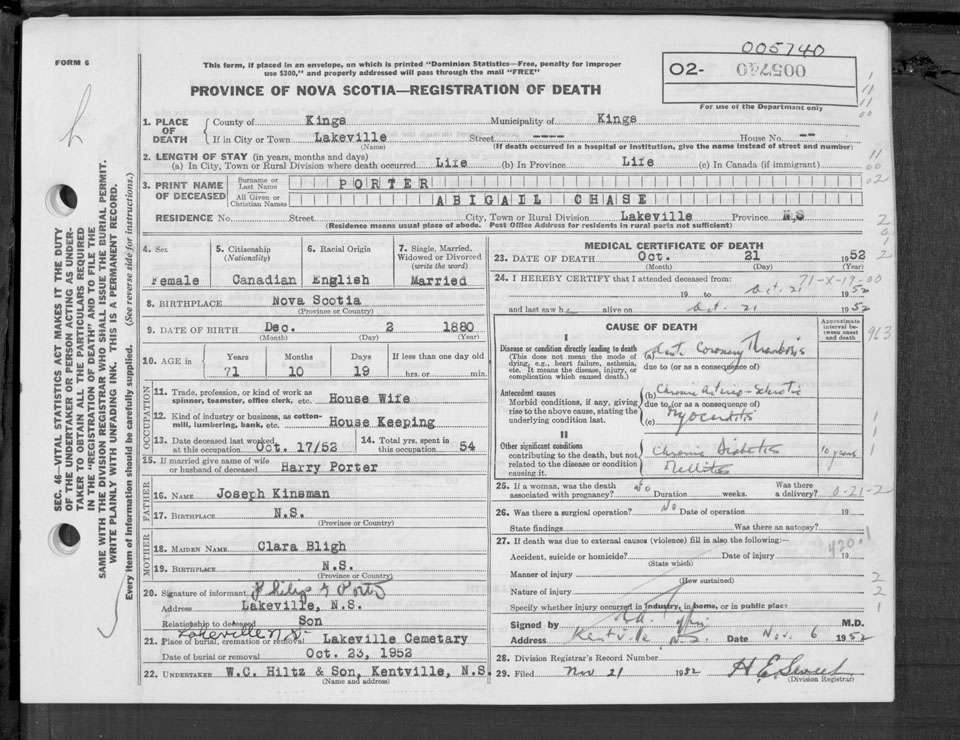 005740
FORM 6
This form, if placed in an envelope, on which is printed "Dominion Statistics—Free, penalty for improper
use $300," and properly addressed will pass through the mail "FREE"
O2- 005740
PROVINCE OF NOVA SCOTIA—REGISTRATION OF DEATH
For use of the Department only
1. PLACE OF DEATH
County of Kings Municipality of Kings
If in City or Town Lakeville Street ---- House No. --
(Name) (If death occurred in a hospital or institution, give the name instead of street and number)
2. LENGTH OF STAY (in years, months and days)
(a) In City, Town or Rural Division where death occurred Life (b) In Province Life (c) In Canada (if immigrant)
3. PRINT NAME OF DECEASED
Surname or Last Name PORTER
All Given or Christian Names ABIGAIL CHASE
RESIDENCE No. Street City, Town or Rural Division Lakeville Province N.S
(Residence means usual place of abode. Post Office Address for residents in rural parts not sufficient)
4. Sex Female
5. Citizenship (Nationality) Canadian
6. Racial Origin English
7. Single, Married, Widowed or Divorced (write the word) Married
8. BIRTHPLACE Nova Scotia
(Province or Country)
9. DATE OF BIRTH Dec. 2 1880
(Month) (Day) (Year)
10. AGE in Years Months Days If less than one day old
71 10 19 hrs. or min.
OCCUPATION
11. Trade, profession, or kind of work as
spinner, teamster, office clerk, etc. House Wife
12. Kind of industry or business, as cotton-
mill, lumbering, bank, etc. House Keeping
13. Date deceased last worked
at this occupation Oct. 17/52
14. Total yrs. spent in
this occupation 54
15. If married give name of wife
or husband of deceased Harry Porter
FATHER
16. NAME Joseph Kinsman
17. BIRTHPLACE N.S.
(Province or Country)
MOTHER
18. MAIDEN NAME Clara Bligh
19. BIRTHPLACE N.S.
(Province or Country)
20. Signature of informant Philip Porter
Address Lakeville, N.S.
Relationship to deceased Son
Lakeville N.S.
21. Place of burial, cremation or removal Lakeville Cemetary
Date of burial or removal Oct. 23, 1952
22. UNDERTAKER W.C. Hiltz & Son, Kentville, N.S.
(Name and address)
MEDICAL CERTIFICATE OF DEATH
23. DATE OF DEATH Oct. 21 1952
(Month) (Day) (Year)
24. I HEREBY CERTIFY that I attended deceased from:
71-X-19-00
19 to Oct. 21 1952
and last saw her alive on Oct. 21 1952
CAUSE OF DEATH
Approximate interval between onset and death
963
I
Disease or condition directly leading to death
(This does not mean the mode of
dying, e.g., heart failure, asthenia,
etc. It means the disease, injury, or
complication which caused death.)
(a) Coronary Thrombosis
due to (or as a consequence of)
Antecedent causes
Morbid conditions, if any, giving
rise to the above cause, stating the
underlying condition last.
(b) Chronic Arterio-Sclerotic
due to (or as a consequence of)
(c) Myocarditis
II
Other significant conditions
contributing to the death, but not
related to the disease or condition
causing it.
Chronic Diabetes
Mellitus
10 years
25. If a woman, was the death
associated with pregnancy? No Duration weeks. Was there
a delivery?
0-21-2
26. Was there a surgical operation? No Date of operation 19
State findings Was there an autopsy?
27. If death was due to external causes (violence) fill in also the following:—
420.1
Accident, suicide or homicide? Date of injury 19
(State which)
Manner of injury
(How sustained)
Nature of injury
Specify whether injury occurred in industry, in home, or in public place
Signed by M.D.
Address Kentville N.S. Date Nov. 6 1952
28. Division Registrar's Record Number
29. Filed Nov 21 1952 H E Sweet
(Division Registrar)
SEC. 46—VITAL STATISTICS ACT MAKES IT THE DUTY
OF THE UNDERTAKER OR PERSON ACTING AS UNDER-
TAKER TO OBTAIN ALL THE PARTICULARS REQUIRED
IN THE "REGISTRATION OF DEATH" AND TO FILE THE
SAME WITH THE DIVISION REGISTRAR WHO SHALL ISSUE THE BURIAL PERMIT.
WRITE PLAINLY WITH UNFADING INK. THIS IS A PERMANENT RECORD.
Every item of information should be carefully supplied. (See reverse side for instructions.)